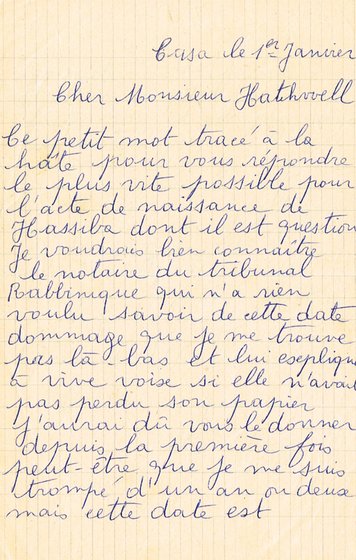 Casa le 1er Janvier
Cher Monsieur Hatchwell
Ce petit mot tracé à la
hâte pour vous répondre
le plus vite possible pour
l'acte de naissance de
Hassiba dont il est question
Je voudrais bien connaître
le notaire du tribunal
Rabbinique qui n'a rien
voulu savoir de cette date
dommage que je me trouve
pas là-bas et lui eseplique
à vive voise si elle n'avait
pas perdu son papier
j'aurai dû vous le donner
depuis la première fois
peut-être que je me suis
trompé d'un an ou deux
mais cette date est